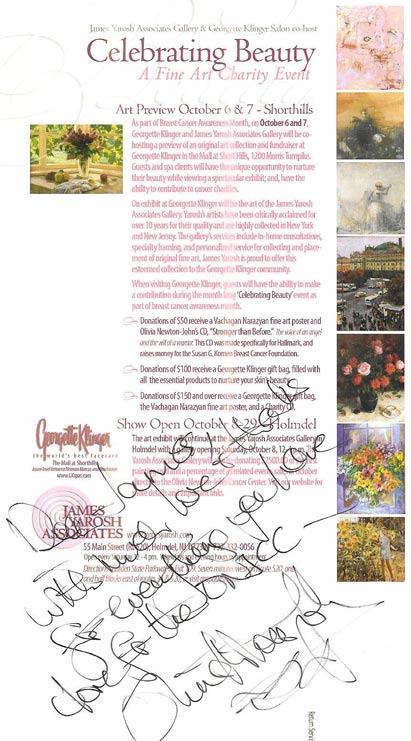 James Yarosh Associates Gallery & Georgette Klinger Salon co-host
Celebrating Beauty
A Fine Art Charity Event
Art Preview October 6 & 7 - Shorthills
As part of Breast Cancer Awareness Month, on October 6 and 7,
Georgette Klinger and James Yarosh Associates Gallery will be co-
hosting a preview of an original art collection and fundraiser at
Georgette Klinger in the Mall at Short Hills, 1200 Morris Turnpike.
Guests and spa clients will have the unique opportunity to nurture
their beauty while viewing a spectacular exhibit; and, have the
ability to contribute to cancer charities.
On exhibit at Georgette Klinger will be the art of the James Yarosh
Associates Gallery. Yarosh's artists have been critically acclaimed for
over 10 years for their quality and are highly collected in New York
and New Jersey. The gallery's services include in-home consultations,
specialty framing, and personalized service for collecting and place-
ment of original fine art. James Yarosh is proud to offer this
esteemed collection to the Georgette Klinger community.
When visiting Georgette Klinger, guests will have the ability to make
a contribution during the month long 'Celebrating Beauty' event as
part of breast cancer awareness month.
Donations of $50 receive a Vachagan Narazyan fine art poster and
Olivia Newton-John's CD, "Stronger than Before." The voice of an angel
and the will of a warrior. This CD was made specifically for Hallmark, and
raises money for the Susan G. Komen Breast Cancer Foundation.
Donations of $100 receive a Georgette Klinger gift bag, filled with
all the essential products to nurture your skin's beauty.
Donations of $150 and over receive a Georgette Klinger gift bag,
the Vachagan Narazyan fine art poster, and a Charity CD.
Show Open October 8-29 Holmdel
The art exhibit will continue at the James Yarosh Associates Gallery in
Holmdel with a opening Saturday, October 8, 12 - 4 p.m. The
Yarosh Associates Gallery will be donating $2500.00 of
and a percentage of all related events sales October
directly to the Olivia Newton-John Cancer Center. Visit our website for
more details and important links.
Georgette Klinger
the world's best facecare
The Mall at Shorthills
www.GKspas.com
JAMES
YAROSH
ASSOCIATES
55 Main Street (Rt 520), Holmdel, NJ
Dear James
with love
for
you
have
done for the
Return Servic